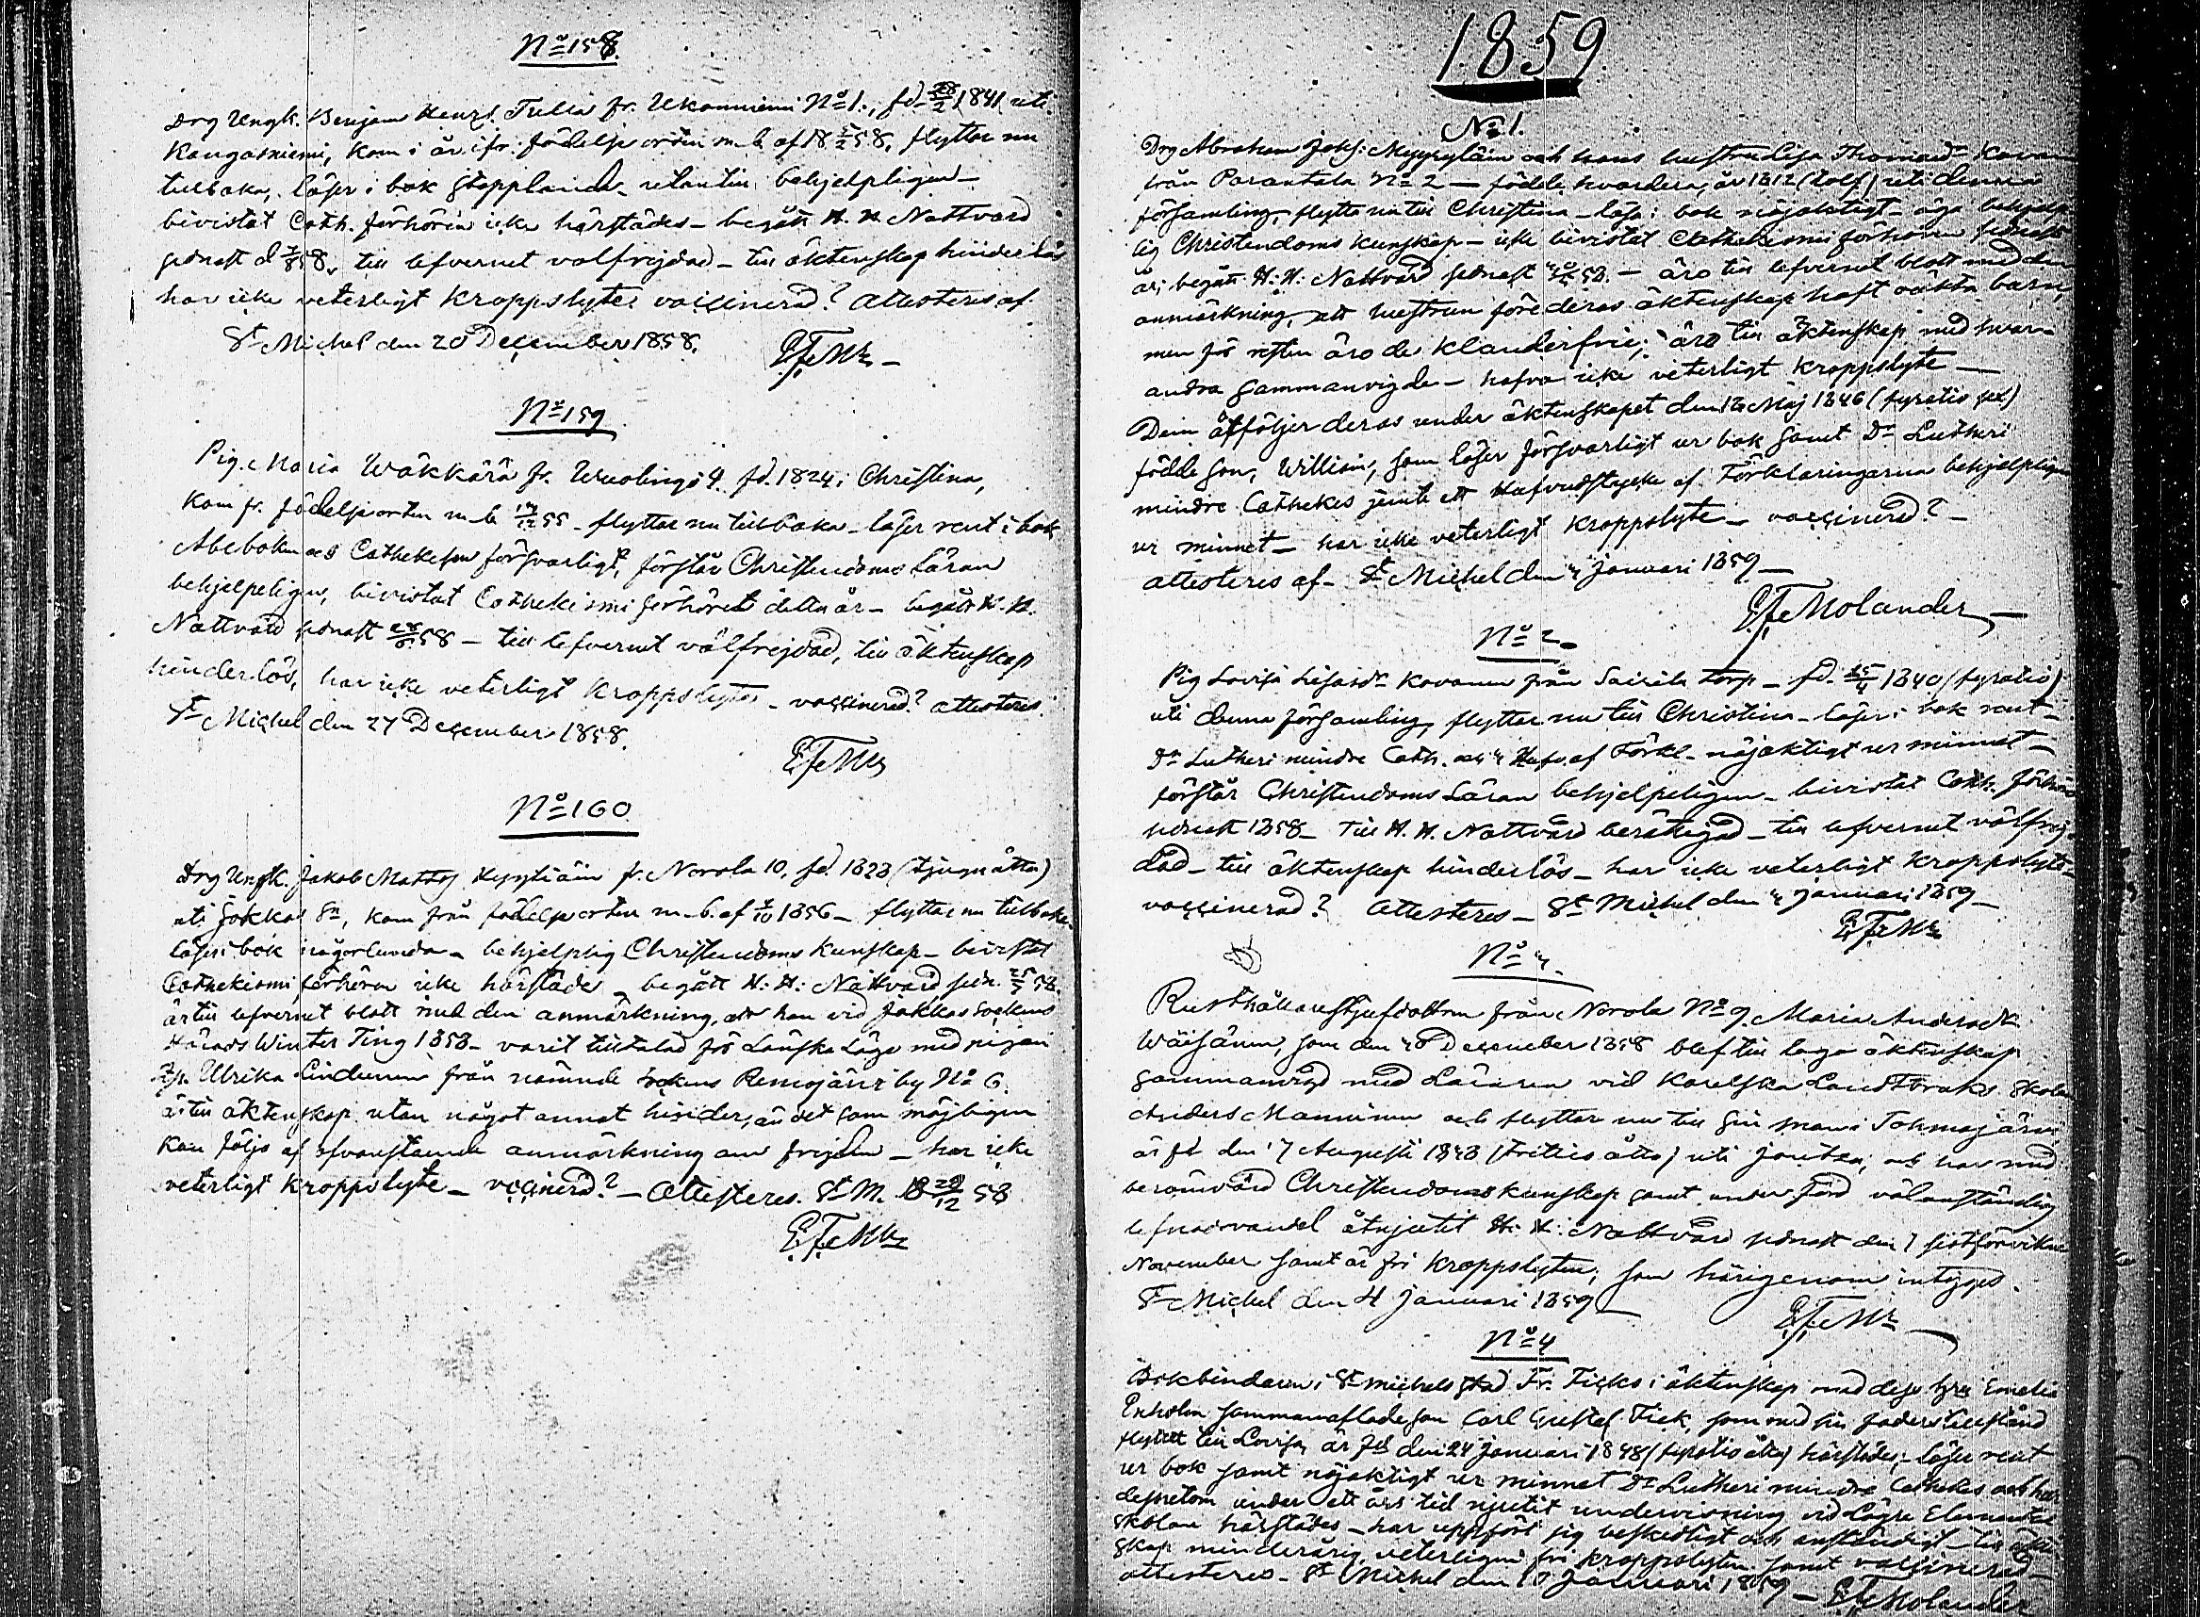 No 158.
Drg Ungk. Benjam Henrs. Tullia fr. Ukonniemi No 1., fd. 28/2 1841 uti
Kangasniemi, kom i år ifr. födelse orten m. b. af 18 5/2 58, flyttar nu
tillbaka, läser i bok stapplande, utantill behjelpligen –
bivistat Cath. förhören icke härstädes – begått H. H. Nattvard
sednast d 58, till lefvernet välfrejdad – till äktenskap hinderlös
har icke veterligt kroppslyte; vaccinerad? Attesteras af
St Michel den 20 December 1858.
No 159.
Pig. Maria Wäkkärä fr. Wuolingi 4. fd. 1824 i Christina,
kom fr. födelseorten m. b. 55 – flyttar nu tillbaka – läser rent i bok
Abeboken och Cathekesen försvarligt, förstår Christendoms Läran
behjelpeligen, bivistat Cathekismi förhöret detta år – begått H. H.
Nattvard sednast 58 – till lefvernet välfrejdad, till äktenskap
hinderlös, har icke veterligt kroppslyte – vaccinerad? attesteras
St Michel den 27 December 1858.
No 160.
Drg Ungk. Jakob Matts. fr. Norola 10, fd. 1828 (tjuguåtta)
uti Jokkas Sn, kom från födelseorten m. b. af 1856 – flyttar nu tillbaka
läser i bok någorlunda – behjelplig Christendoms kunskap – bivistat
Cathekismi förhören icke härstädes – begått H: H: Nattvard sedn. 58.
är till lefvernet blott med den anmärkning, att han vid Jokkas Sockens
Härads Winter Ting 1858 – varit tilltalad för Lönska Läge med pigan
Ulrika från nämnde Sockens Remojärvi by No 6.
är till äktenskap utan något annat hinder, än det som möjligen
kan följa af ofvanstående anmärkning om frejden – har icke
veterligt kroppslyte – vaccinerad? – Attesteras. St M. d 28/12 58
1859
No 1.
Drg Abraham Johs: Myyryläin och hans hustru Lisa Thomasdr Kovan
från Parantala No 2 – födde hvardera, år 1812 (tolf) uti denna
församling, flytta nu till Christina – läsa i bok nöjaktigt – äga behjelp
lig Christendoms kunskap – icke bivistat Cathekismi förhören sednaste
år; begått H: H: Nattvard sednast 58. – äro till lefvernet blott med den
anmärkning, att hustrun före deras äktenskap haft oäkta barn,
men för resten äro de klanderfrie; äro till äktenskap med hvar-
andra sammanvigde – hafva icke veterligt kroppslyte –
Dem åtföljer deras under äktenskapet den 18 Maj 1846 (fyratio sex)
födde son, Willism, som läser försvarligt ur bok samt Dr Lutheri
mindre Cathekes jemte ett Hufvudstycke af Förklaringarna behjelpligen
ur minnet – har icke veterligt kroppslyte – vaccinerad? –
attesteras af – St Michel den 4 Januari 1859 –
Molander
No 2.
Pig Lovisa Lisasdr Kovanen från Sairila torp – fd. 25/4 1840 (fyratio)
uti denna församling, flyttar nu till Christina – läser i bok rent –
Dr Lutheri mindre Cath. och 4 Hufv. af Förkl. nöjaktigt ur minnet –
förstår Christendoms Läran behjelpeligen – bivistat Cath. förhör
sednast 1858 – till H. H. Nattvard berättigad – till lefvernet välfrej-
dad – till äktenskap hinderlös – har icke veterligt kroppslyte –
vaccinerad? Attesteras – St Michel den 4 Januari 1859 –
Rusthållarestjufdottren från Norola No 9. Maria Andersdr
Wäisänen, som den 28 December 1858 blef till laga äktenskap
sammanvigd med Läraren vid Karelska Landtbruks Skolan
Anders Manninen och flyttar nu till sin man i Tohmajärvi
är fd den 17 Augusti 1838 (trettio åtta) uti Joutsa, och har med
berömvärd Christendomskunskap samt under förd välanständig
lefnadsvandel åtnjutit H: H: Nattvard sednast den 7 sistförvikne
November samt är fri kroppslyten, som härigenom intygas.
St Michel den 4 Januari 1859 –
No 4
Bokbindaren i St Michels stad Fr. Ficks i äktenskap med dess hu Emelia
Enholm sammanaflade son Carl Gustaf Fick, som med sin faders tillstånd
flyttat till Lovisa, är fdd den 24 Januari 1848 (fyratio åtta) härstädes, läser rent
ur bok samt nöjaktigt ur minnet Dr Lutheri mindre Cathekes och har
dessutom under ett års tid njutit undervisning vid Lägre Elementar
skolan härstädes – har uppfört sig beskedligt och anständigt – till äkten
skap minderårig, veterligen fri kroppslyten samt vaccinerad –
attesteras – St Michel den 10 Januari 1859 – Molander